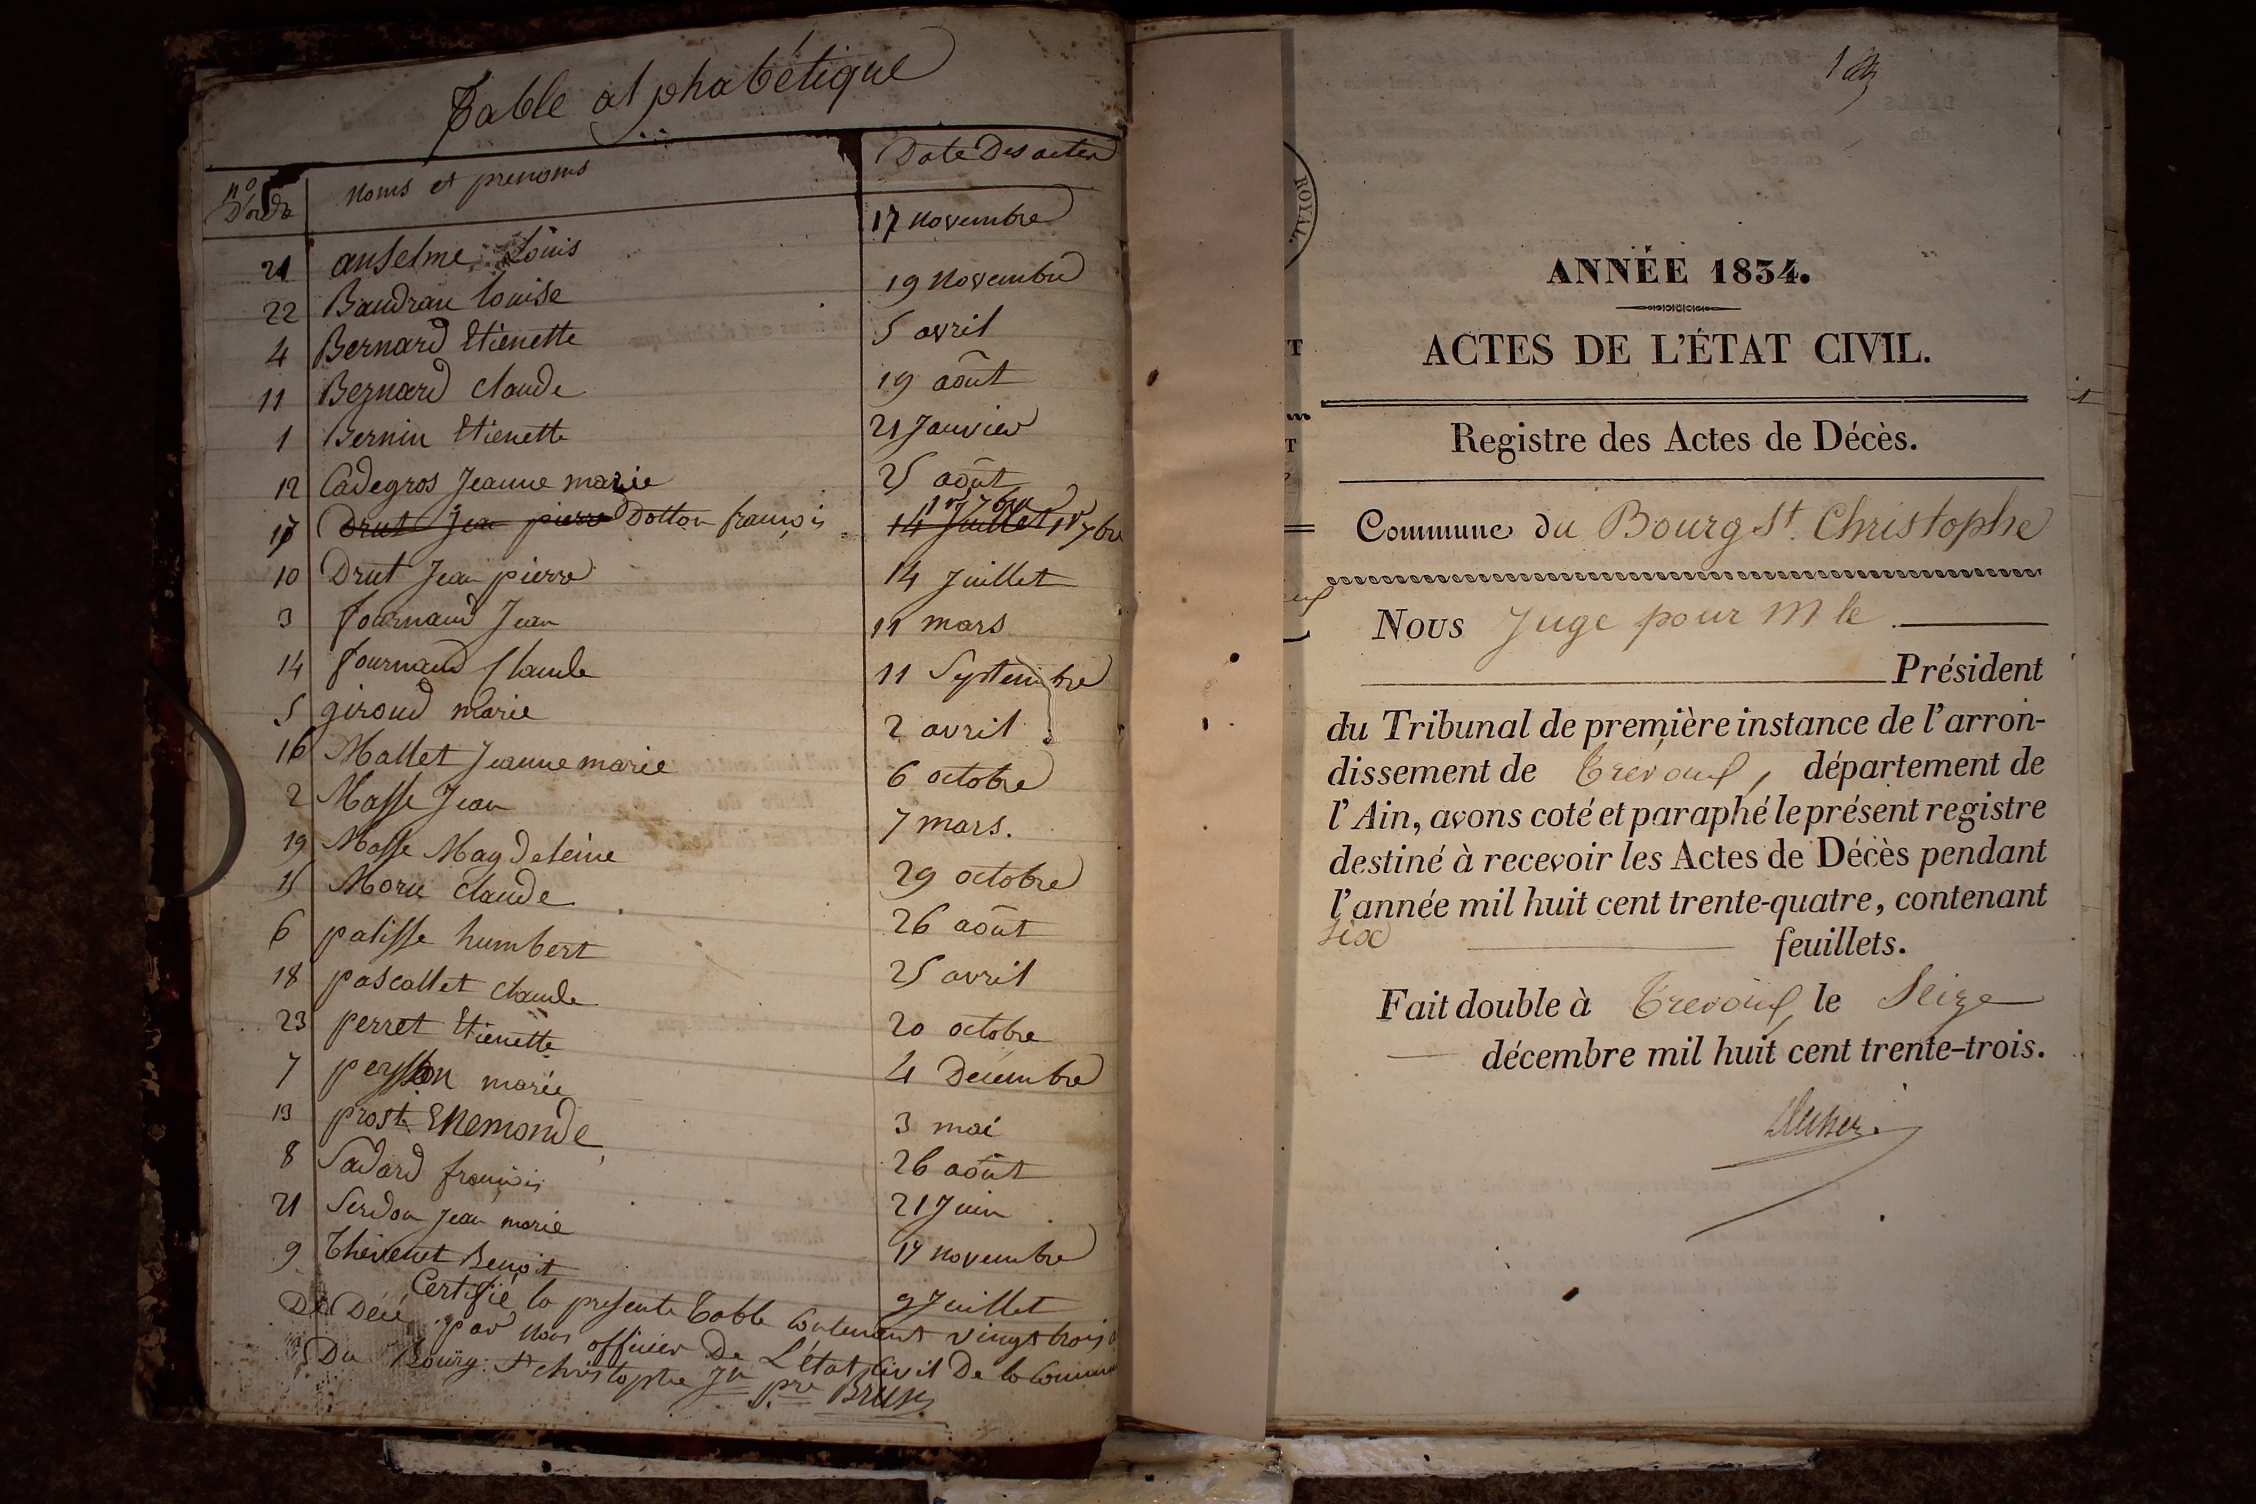 Table alphabétique
nos D'ordre noms et prenoms Date Des actes
21 anselme Louis 17 novembre
22 Baudran Louise 19 Novembre
4 Bernard Etienette 5 avril
11 Bernard Claude 19 août
1 Bernin Etienette 21 Janvier
12 Cadegros Jeanne marie 25 août
17 Drut Jean pierre Dotton françois 14 Juillet 1r 7bre
10 Drut Jean pierre 14 Juillet
3 fournaud Jean 11 mars
14 fournaud Claude 11 Septembre
5 giroud marie 2 avril
16 Mallet Jeanne marie 6 octobre
2 Masse Jean 7 mars.
19 Masse Magdeleine 29 octobre
15 Claude 26 août
6 palisse humbert 25 avril
18 pascallet Claude 20 octobre
23 perret Etienette 4 Decembre
7 peysson marie 3 mai
13 prost Enemonde 26 août
8 Sadard françois 21 Juin
21 Serdon Jean marie 17 novembre
9 Thevenet Benoit 9 Juillet
Certifié la presente Table Contenant vingt trois
De Décé par nous officier De L'état Civil De la Commune
Du Bourg St christophe Jn pre Brun
1er
ROYAL.
ANNÉE 1834.
ACTES DE L'ÉTAT CIVIL.
Registre des Actes de Décès.
Commune du Bourg St. Christophe
Nous Juge pour M le
Président
du Tribunal de première instance de l'arron-
dissement de Trevoux, département de
l'Ain, avons coté et paraphé le présent registre
destiné à recevoir les Actes de Décès pendant
l'année mil huit cent trente-quatre, contenant
six feuillets.
Fait double à Trevoux, le Seize
décembre mil huit cent trente-trois.